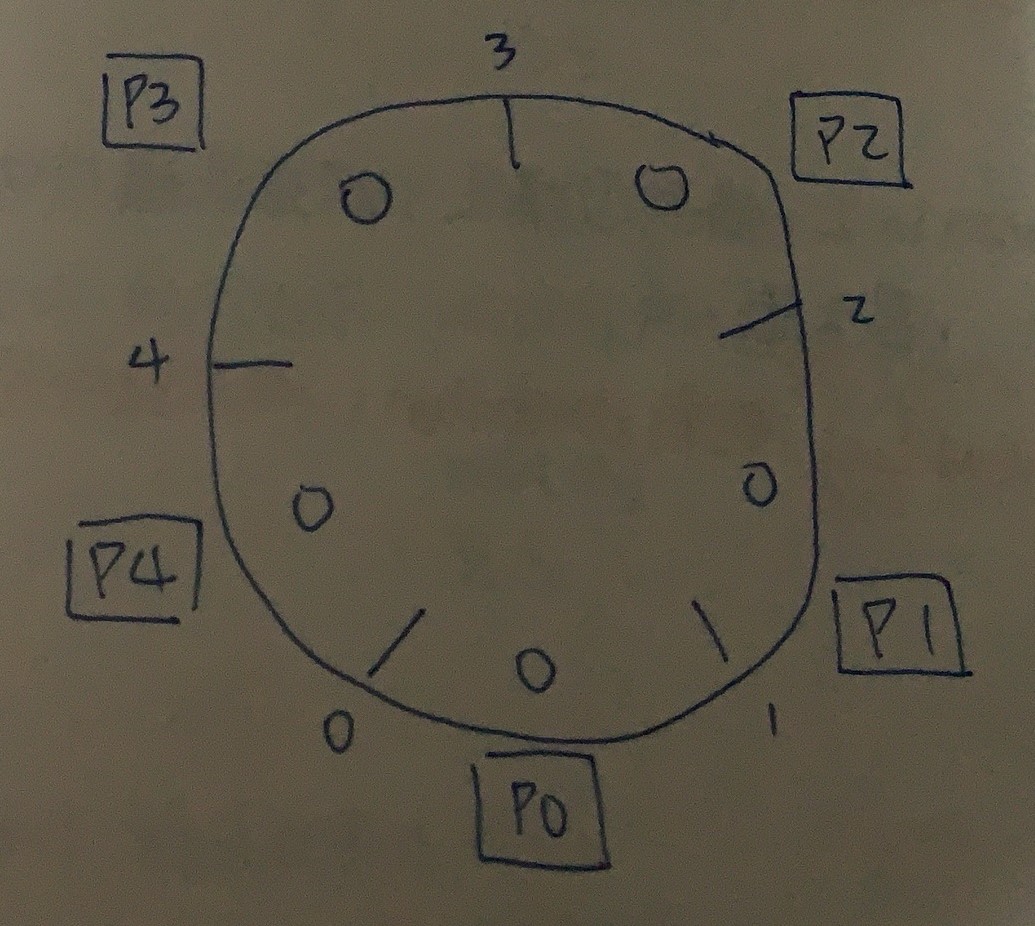 3
P3
P2
2
4
P4
P1
0
1
P0